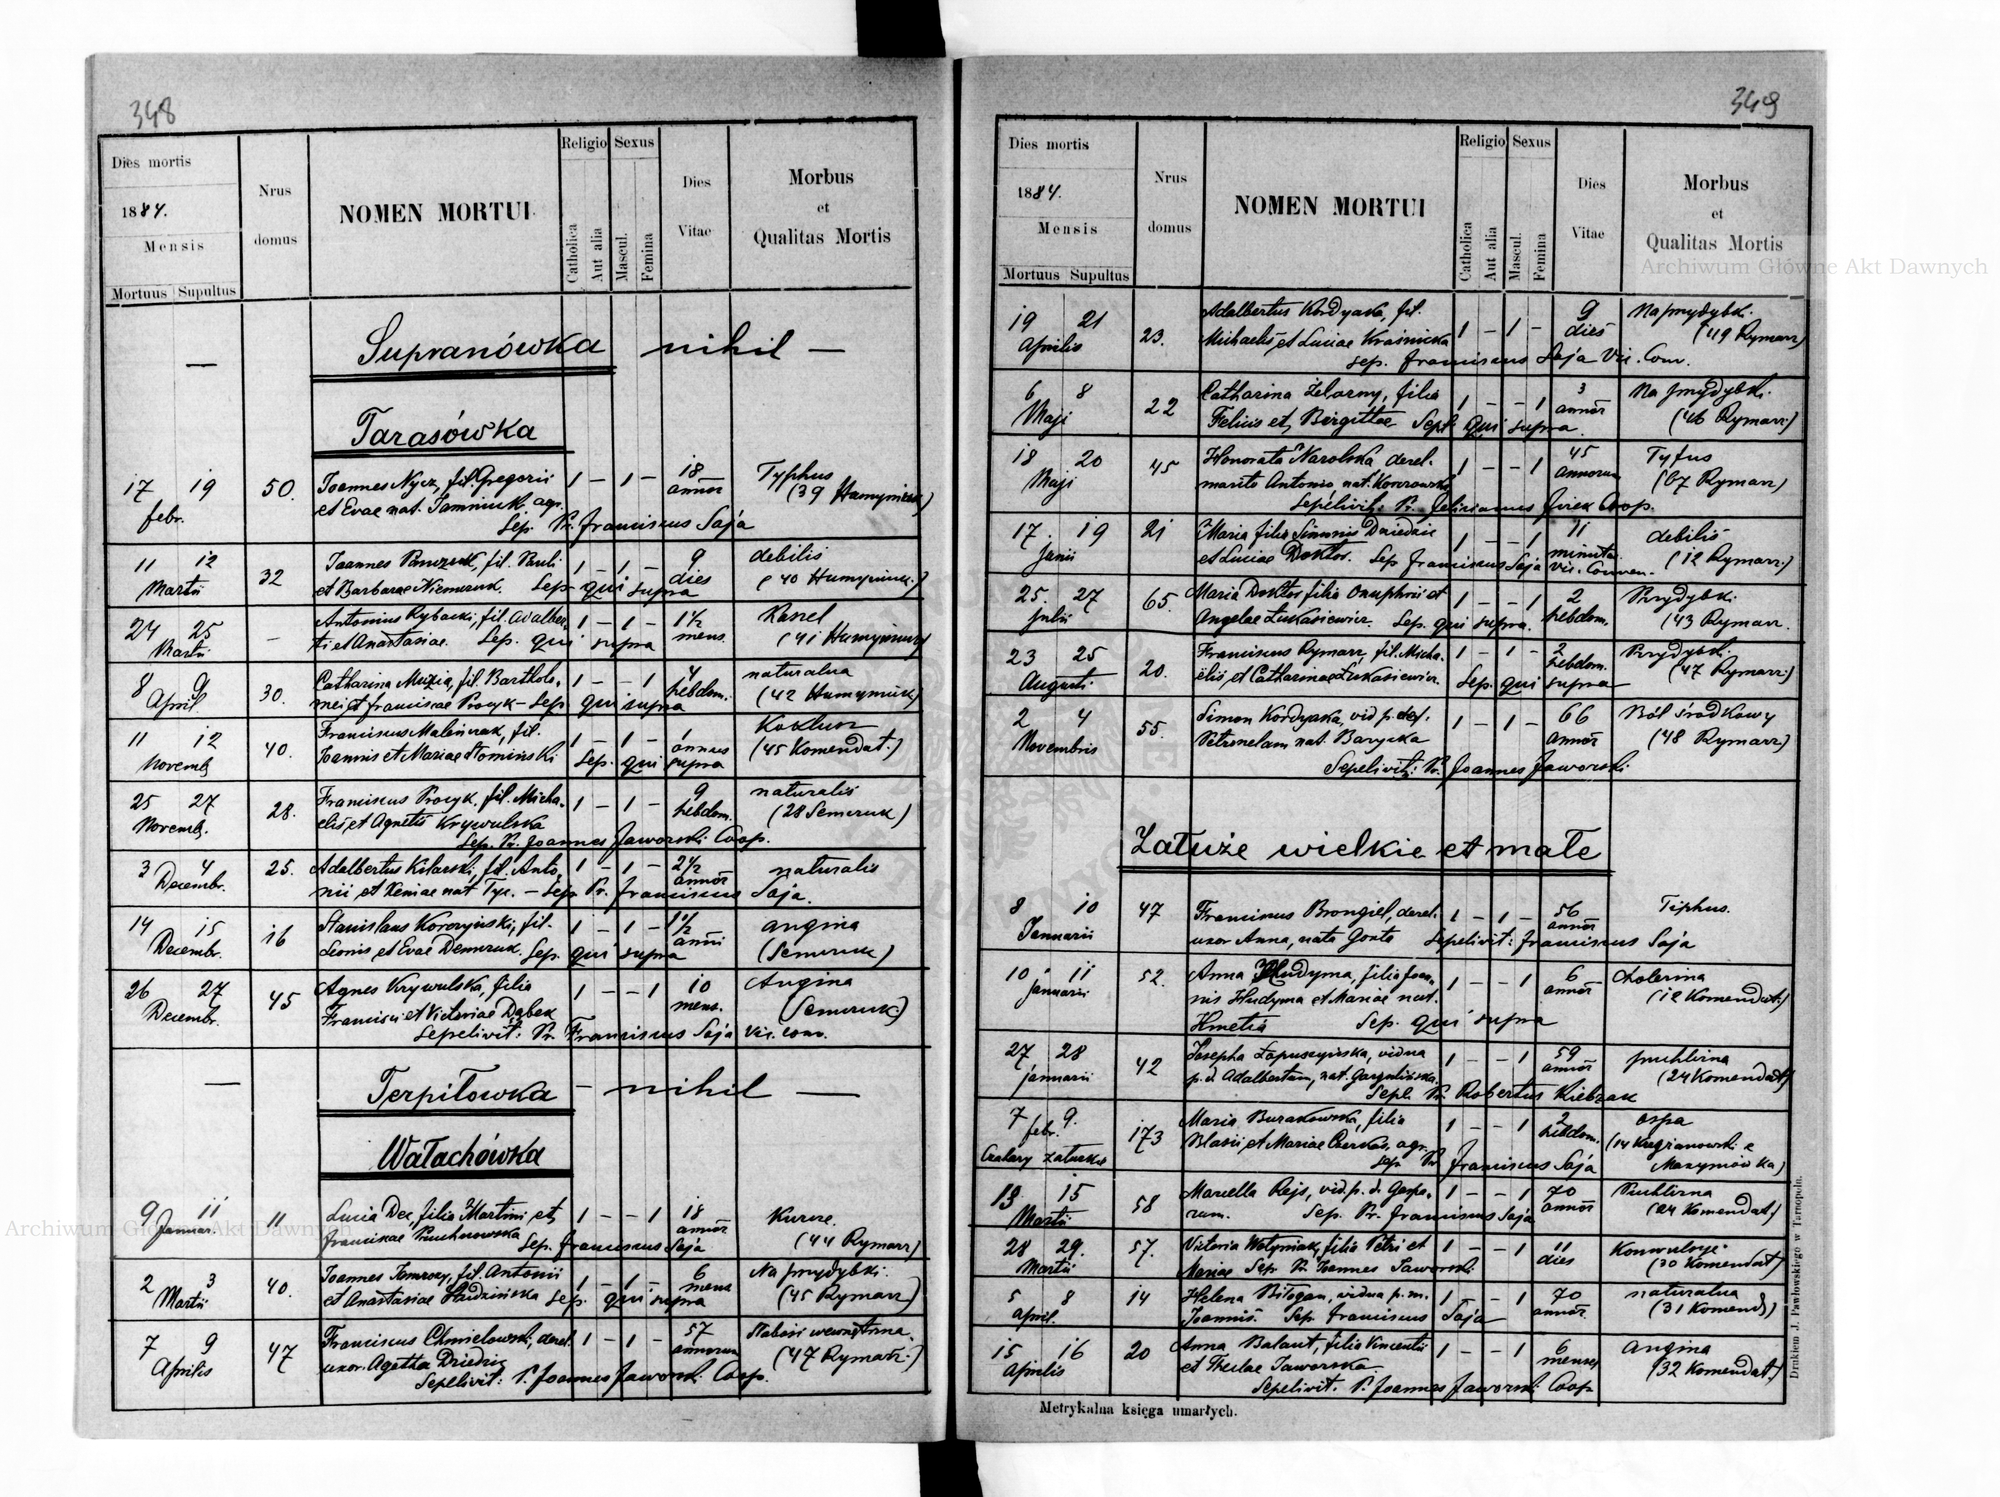 348
Dies mortis
1884.
Mensis
Mortuus Supultus
Nrus domus
NOMEN MORTUI
Religio
Catholica
Aut alia
Sexus
Mascul.
Femina
Dies Vitae
Morbus
et
Qualitas Mortis
— Supranówka nihil —
Tarasówka
17 19 50. Joannes Nycz, fil. Gregorii 1 – 1 – 18 Typhus
febr. et Evae nat. agr. annor (39
Sep. Pr. Franciscus Saja
11 12 32 Joannes fil. Pauli 1 – 1 – 9 debilis
Martii et Barbarae Sep. qui supra dies (40
24 25 – Antonius Rybacki, fil. Adalber- 1 – 1 – 1½ Kassel
Martii ti et Anastasiae. Sep. qui supra mens. (41
8 9 30. Catharina fil. Bartholo- 1 – – 1 4 naturalna
April. mei et Franciscae Procyk – Sep. qui supra hebdom. (42
11 12 40. Franciscus fil. 1 – 1 – 1 Koklusz
Novemb. Joannis et Mariae Sep. qui supra annus (45 Komendat.)
25 27 28. Franciscus Procyk, fil. Micha- 1 – 1 – 9 naturalis
Novemb. elis et Agnetis Krywulska hebdom. (28 Semczuk)
Sep. Pr. Joannes Jaworski Coop.
3 4 25. Adalbertus Kilarski, fil. Anto- 1 – 1 – 2½ naturalis
Decembr. nii et Xeniae nat. Tyc. – Sep. Pr. Franciscus Saja. annor
14 15 16 Stanislaus fil. 1 – 1 – 1½ angina
Decembr. Leonis et Evae Demczuk. Sep. qui supra anni (Semczuk)
26 27 45 Agnes Krywulska, filia 1 – – 1 10 Angina
Decembr. Francisci et Victoriae Dąbek mens. (Semczuk)
Sepelivit: Pr. Franciscus Saja Vic. conv.
— Terpiłowka – nihil —
Wałachówka
9 11 11 Lucia Dec, filia Martini et 1 – – 1 18 Kurcze.
Januar. Franciscae Sep. Franciscus Saja annor (44 Rymarz)
2 3 40. Joannes Jamrozy, fil. Antonii 1 – 1 – 6 Na przydybki.
Martii et Anastasiae Sep. qui supra mens (45 Rymarz)
7 9 47 Franciscus Chmielowski, derel. 1 – 1 – 57
Aprilis uxor. Agatha Dziedzic annorum (47 Rymarz.)
Sepelivit: P. Joannes Jaworski Coop.
349
Dies mortis
1884.
Mensis
Mortuus Supultus
Nrus domus
NOMEN MORTUI
Religio
Catholica
Aut alia
Sexus
Mascul.
Femina
Dies Vitae
Morbus
et
Qualitas Mortis
Archiwum Główne Akt Dawnych
19 21 23. Adalbertus Kordyaka, fil. 1 – 1 – 9 Na przydybk.
Aprilis Michaelis et Luciae Kraśnicka dies (49 Rymarz)
Sep. Franciscus Saja Vic. Conv.
6 8 22 Catharina Żelazny, filia 1 – – 1 3 Na przydybki.
Maji Felicis et Birgittae Sepl. qui supra. annor (46 Rymarz.)
18 20 45 Honorata Narolska derel. 1 – – 1 45 Tyfus
Maji marito Antonio, nat. annorum (67 Rymarz)
Sepelivit: Pr. Felicianus Coop.
17 19 21 Maria filia Simonis Dziedzic 1 – – 1 11 debilis
Junii et Luciae Doktor. Sep. Franciscus Saja Vic. Conven. minuta (12 Rymarz.)
25. 27 65. Maria Doktor, filia Onuphrii et 1 – – 1 2 Przydybki
Julii Angelae Łukasiewicz. Sep. qui supra. hebdom. (43 Rymarz.
23 25 20. Franciscus Rymarz, fil. Micha- 1 – 1 – 2 Przydybk.
Augusti ëlis et Catharinae Łukasiewicz. Sep. qui supra hebdom. (47 Rymarz.)
2 4 55. Simon Kordyaka, vid. p. def. 1 – 1 – 66 Ból środkowy
Novembris Petronelam nat. Barycka annor (48 Rymarz)
Sepelivit: Pr. Joannes Jaworski
Załuże wielkie et małe
8 10 47 Franciscus Brongiel, derel. 1 – 1 – 56 Tiphus.
Januarii uxor Anna, nata Gonta Sepelivit: Franciscus Saja annor
10 11 52. Anna Hudyma, filia Joan- 1 – – 1 6 Cholerina
Januarii nis Hudyma et Mariae nat. annor (12 Komendat.)
Kmetia Sep. qui supra
27 28 42 Josepha Łopuszyńska, vidua 1 – – 1 59 puchlina
Januarii p. d. Adalbertum, nat. annor (24 Komendat)
Sepl. Pr. Robertus
7 9. 173 Maria Burakowska, filia 1 – – 1 2 ospa
febr. Blasii et Mariae Czerkas, agr. hebdom. (14
Sep. Pr. Franciscus Saja
13 15 58 Marcella Rejs, vid. p. d. Gaspa- 1 – – 1 70 Puchlina
Martii rum. Sep. Pr. Franciscus Saja annor (24 Komendat)
28 29. 57. Victoria Wołyniak, filia Petri et 1 – – 1 11 Konwulsye.
Martii Mariae Sep. Pr. Joannes Jaworski dies (30 Komendat)
5 8 14 Helena Biłogan, vidua p. m. 1 – – 1 70 naturalna
April. Joannis. Sep. Franciscus Saja annor (31 Komend.)
15 16 20 Anna Balaut, filia Vincentii 1 – – 1 6 Angina
Aprilis et Theclae Jaworska. menses (32 Komendat.)
Sepelivit. P. Joannes Jaworski Coop
Metrykalna księga umarłych.
Drukiem J. Pawłowskiego w Tarnopolu.
Archiwum Główne Akt Dawnych